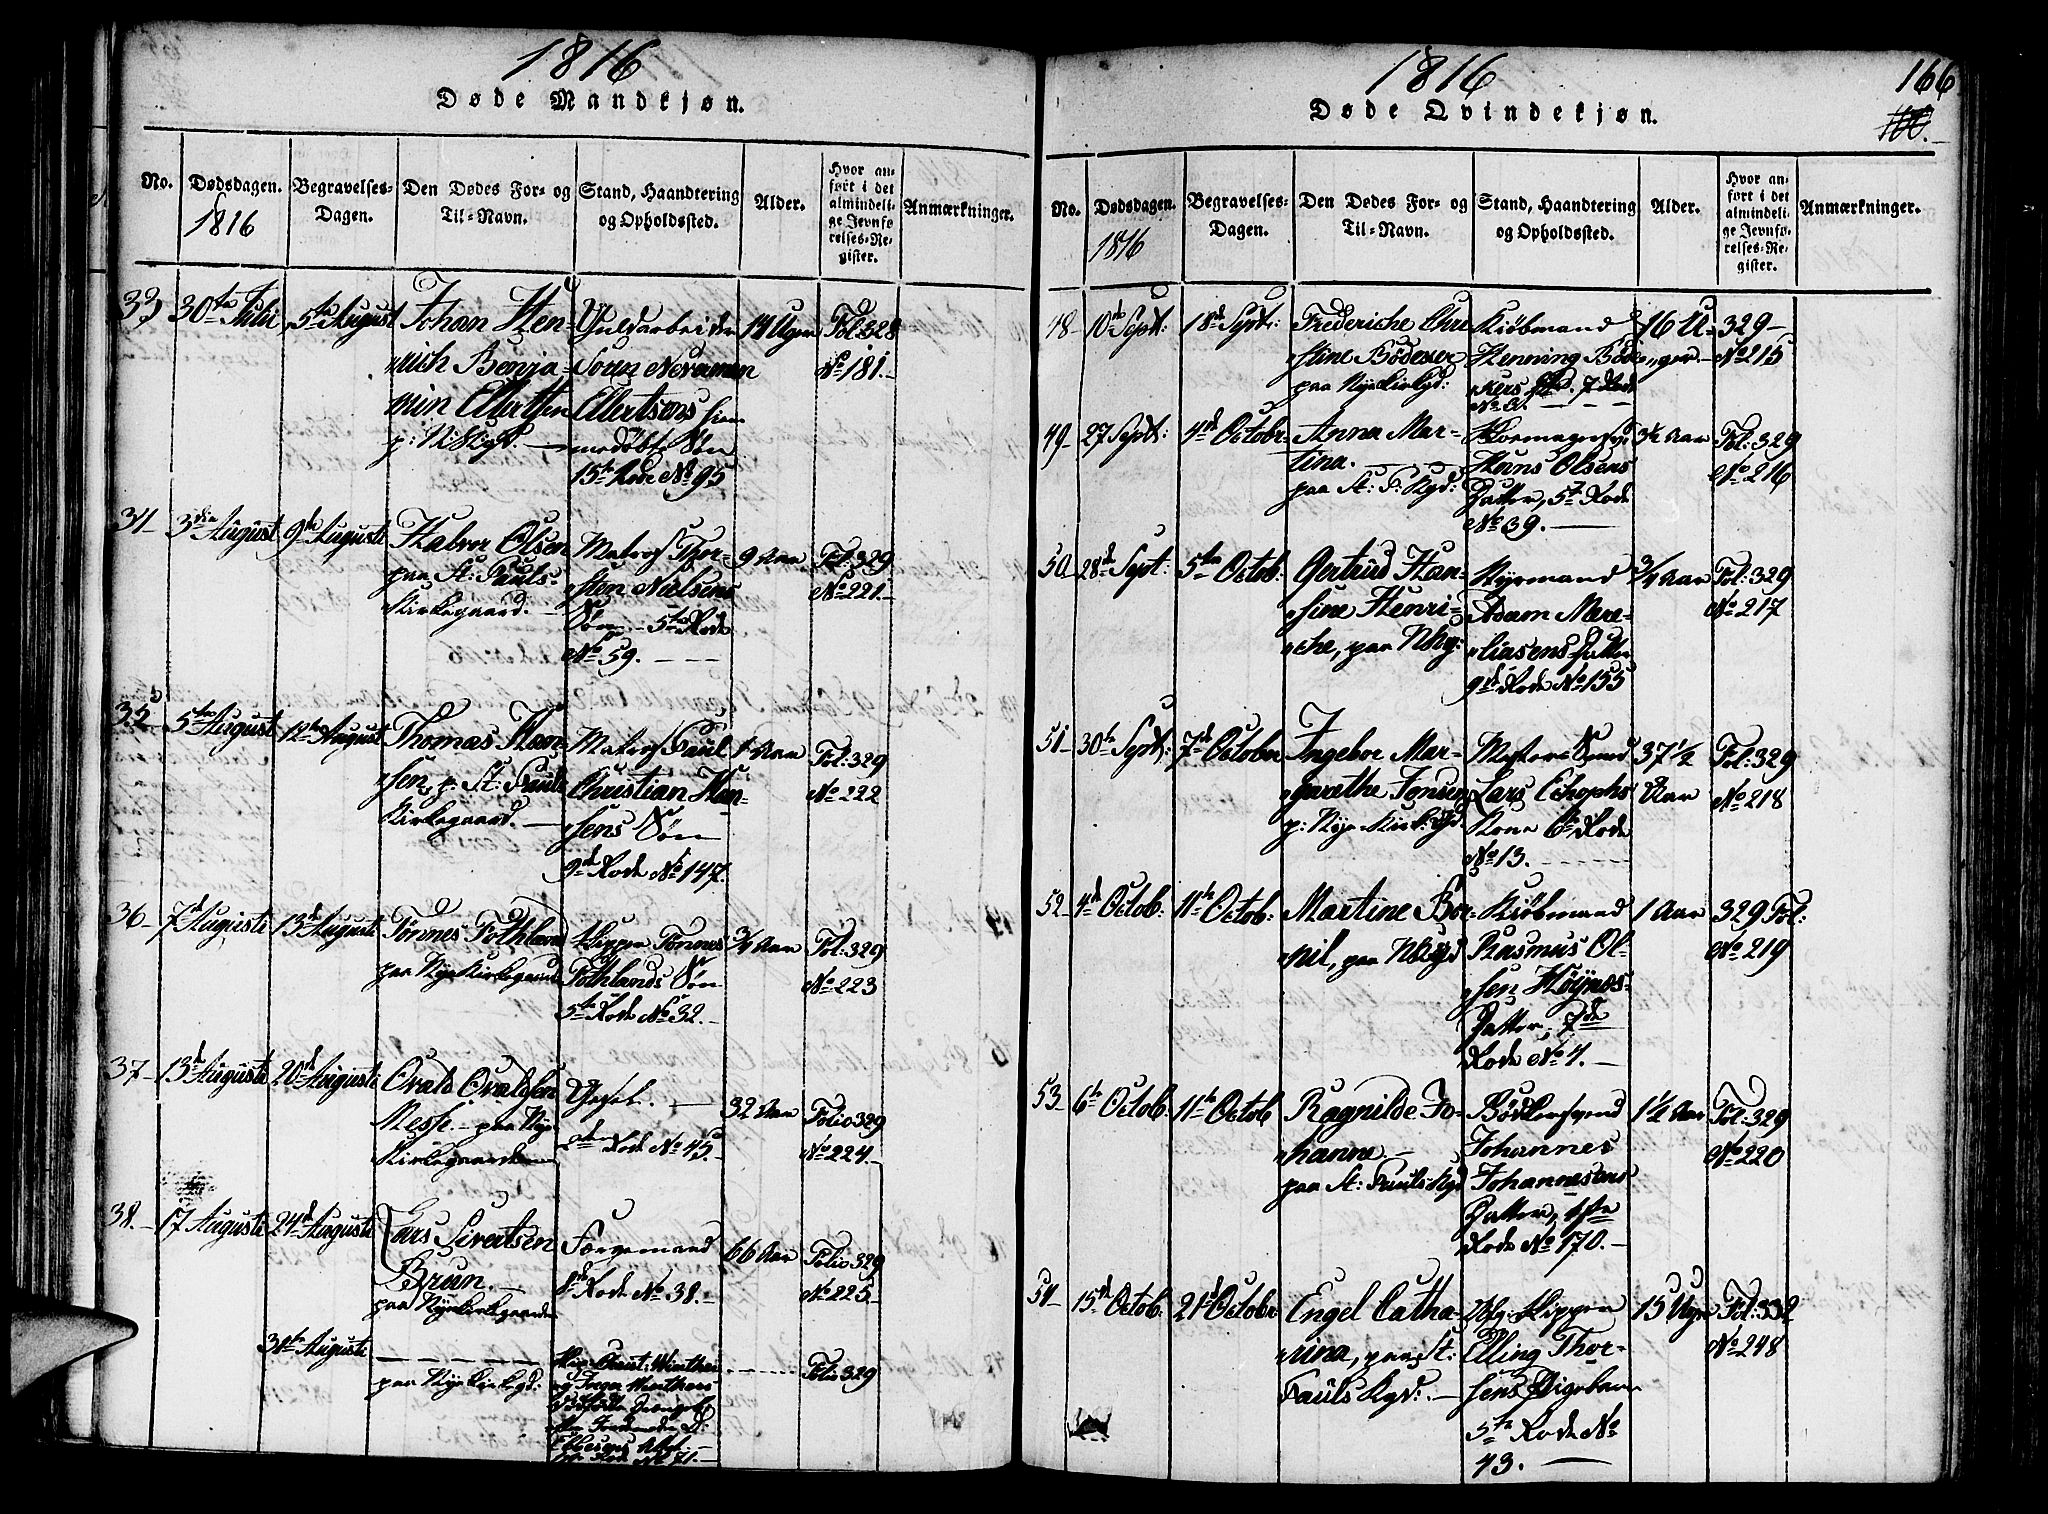 1816
Døde Mandkjøn.
No.
Dødsdagen.
1816
Begravelses-
Dagen.
Den Dødes For- og
Til-Navn.
Stand, Haandtering
og Opholdssted.
Alder.
Hvor an-
ført i det
almindeli-
ge Jevnfø-
relses-Re-
gister.
Anmærkninger.
33
30te Julii
5te August
Johan Hen-
rich Benja-
min Ellertsen
Guldarbeider
Søren
Ellertsens hiem-
medøbte Søn
15te Rode No 95
14 Uger
Fol: 328
No 181.
34
3die August
9de Augusti
Halvor Olsen
paa St: Pauls
Kirkegaard.
Matros Thor-
sten Nielsens
Søn 5te Rode
No 59.
9 Aar
Fol: 329
No 221.
35
5te August
12te August
Thomas Han-
sen, p. St: Pauls
Kirkegaard.
Matros Paul
Christian Han-
sens Søn
9de Rode No 147.
1 Aar
Fol: 329
No 222
36
7de Augusti
13de Augusti
Tønnes Tothland
paa Nye Kirkegaard
Skipper Tønnes
Tothlands Søn
5te Rode No 32.
3/4 Aar
Fol: 329
No 223
37
13de Augusti
20de Augusti
Ovald Ovaldsen
Messe. paa Nye
Kirkegaarden
Gesel.
Rode No 45.
32 Aar
Folio 329
No 224
38.
17 Augusti
24de Augusti
Lars Sivertsen
Brun.
paa Nye Kirkegaarden
Færgemand
8de Rode No 38.
66 Aar
Folio 329
No 225
31te Augusti
paa Nye Kirkegd:
Christ: Winther
Folio 329
1816
166
Døde Qvindekjøn.
No.
Dødsdagen.
1816
Begravelses-
Dagen.
Den Dødes For- og
Til-Navn.
Stand, Haandtering
og Opholdssted.
Alder.
Hvor an-
ført i det
almindeli-
ge Jevnfø-
relses-Re-
gister.
Anmærkninger.
48
10de Sept:
18de Sept:
Frederiche Chri-
stine Bødeker
paa Nye Kirkgd:
Kiøbmand
Henning Böde-
kers 7de Rode
16 U-
ger
329
No 215
49
27 Sept:
4de Octobr
Anna Mar-
tina.
paa St: P: Kgd:
Hans Olsens
Datter, 5te Rode
No 39.
3 1/2 Aar
Fol: 329
No 216
50
28de Sept:
5te Octob:
Gertrud Han-
sine Henri-
che, paa Nkg:
Styrmand
Adam Mare-
liasens Datter
9de Rode No 155
3/4 Aar
Fol: 329
No 217
51
30te Sept:
7de October
Ingebor Mar-
garethe Jonsen
p: Nye Kirkegd
Lars
Kone 6te Rode
No 13.
37 1/2
Aar
Fol: 329
No 218
52
4de Octob:
11te Octob:
Martine Bor-
nil, paa NKgd
Kiøbmand
Rasmus Ol-
sen Höynes
Datter, 7de
Rode No 4.
1 Aar
329 Fol:
No 219
53
6te Octob:
11te Octob
Ragnilde Jo-
hanne.
paa St: Pauls Kgd
Bødkersvend
Johannes
Johannesens
Datter, 1ste
Rode No 170.
1 1/2 Aar
Fol: 329
No 220
54
15de Octob.
21de Octobr
Engel Catha-
rina, paa St:
Pauls Kgd:
Skipper
Elling Thor-
sens Pigebarn
5te Rode No
43.
15 Uger
Fol: 332
No 248